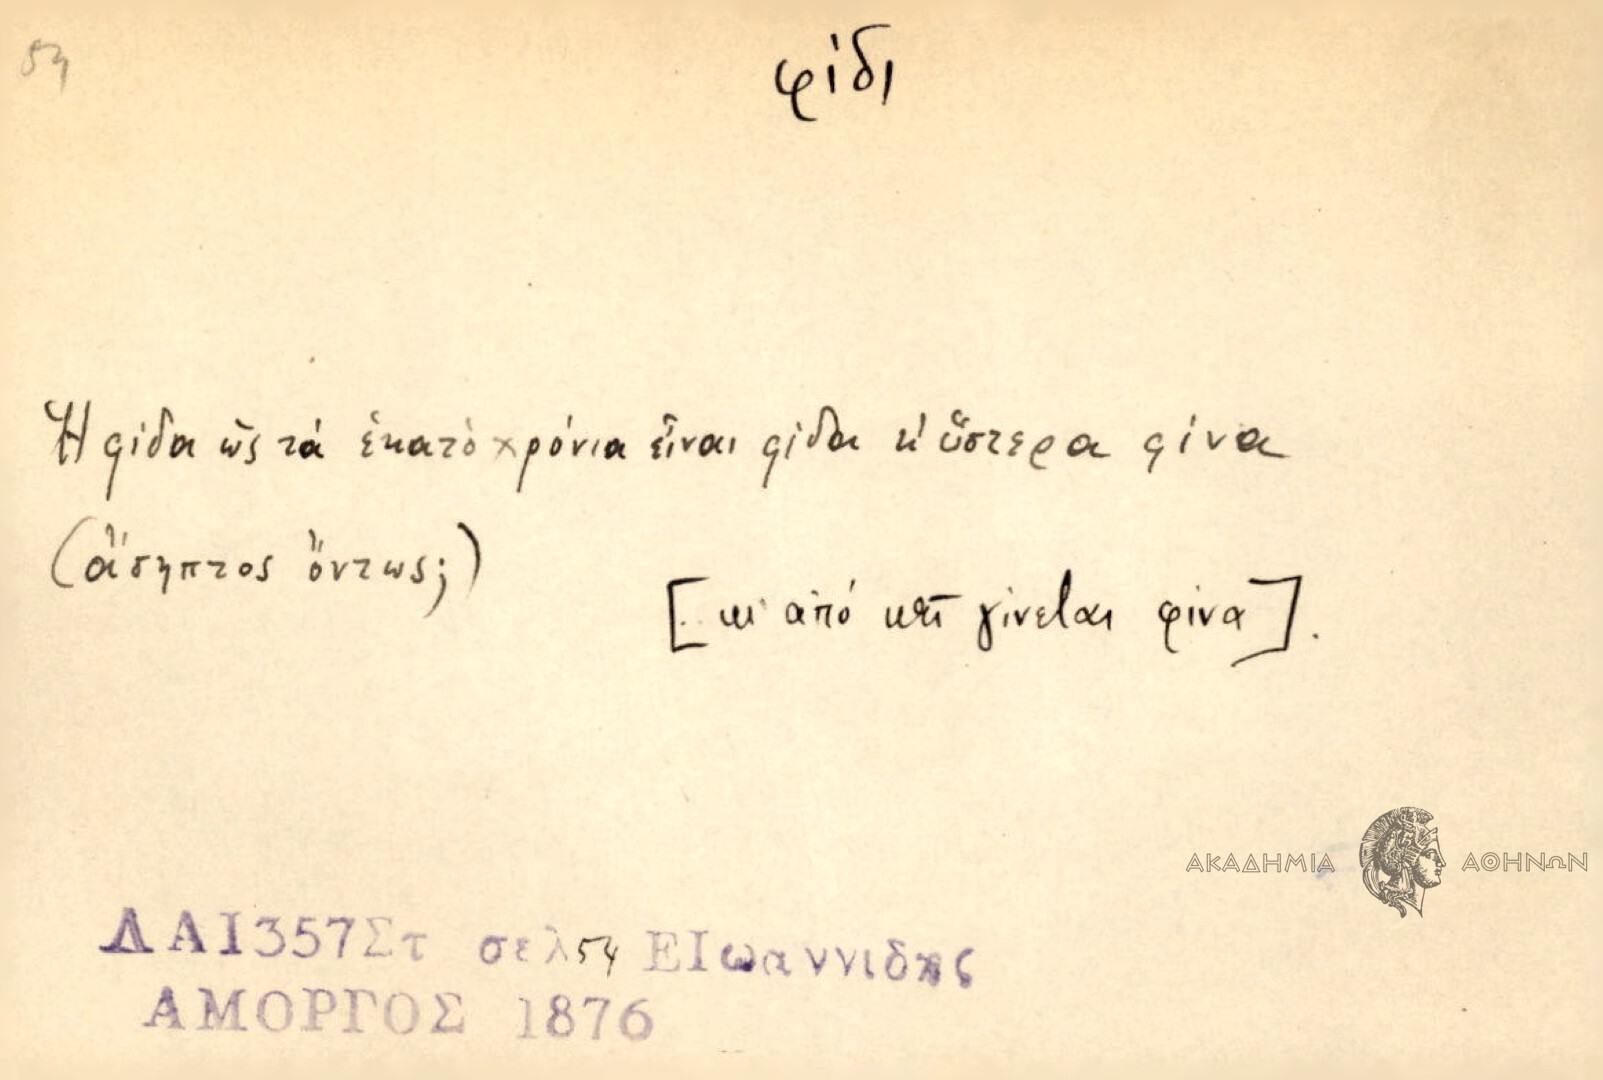 54
φίδι
Ἡ φίδα ὥς τά ἑκατό χρόνια εἶναι φίδα κ' ὕστερα φίνα
(ἄσηπτος ὄντως;)
[κι' ἀπό κεῖ γίνεται φίνα].
ΑΚΑΔΗΜΙΑ ΑΘΗΝΩΝ
ΔΑΙ357Στ σελ54 ΕΙωαννιδης
ΑΜΟΡΓΟΣ 1876